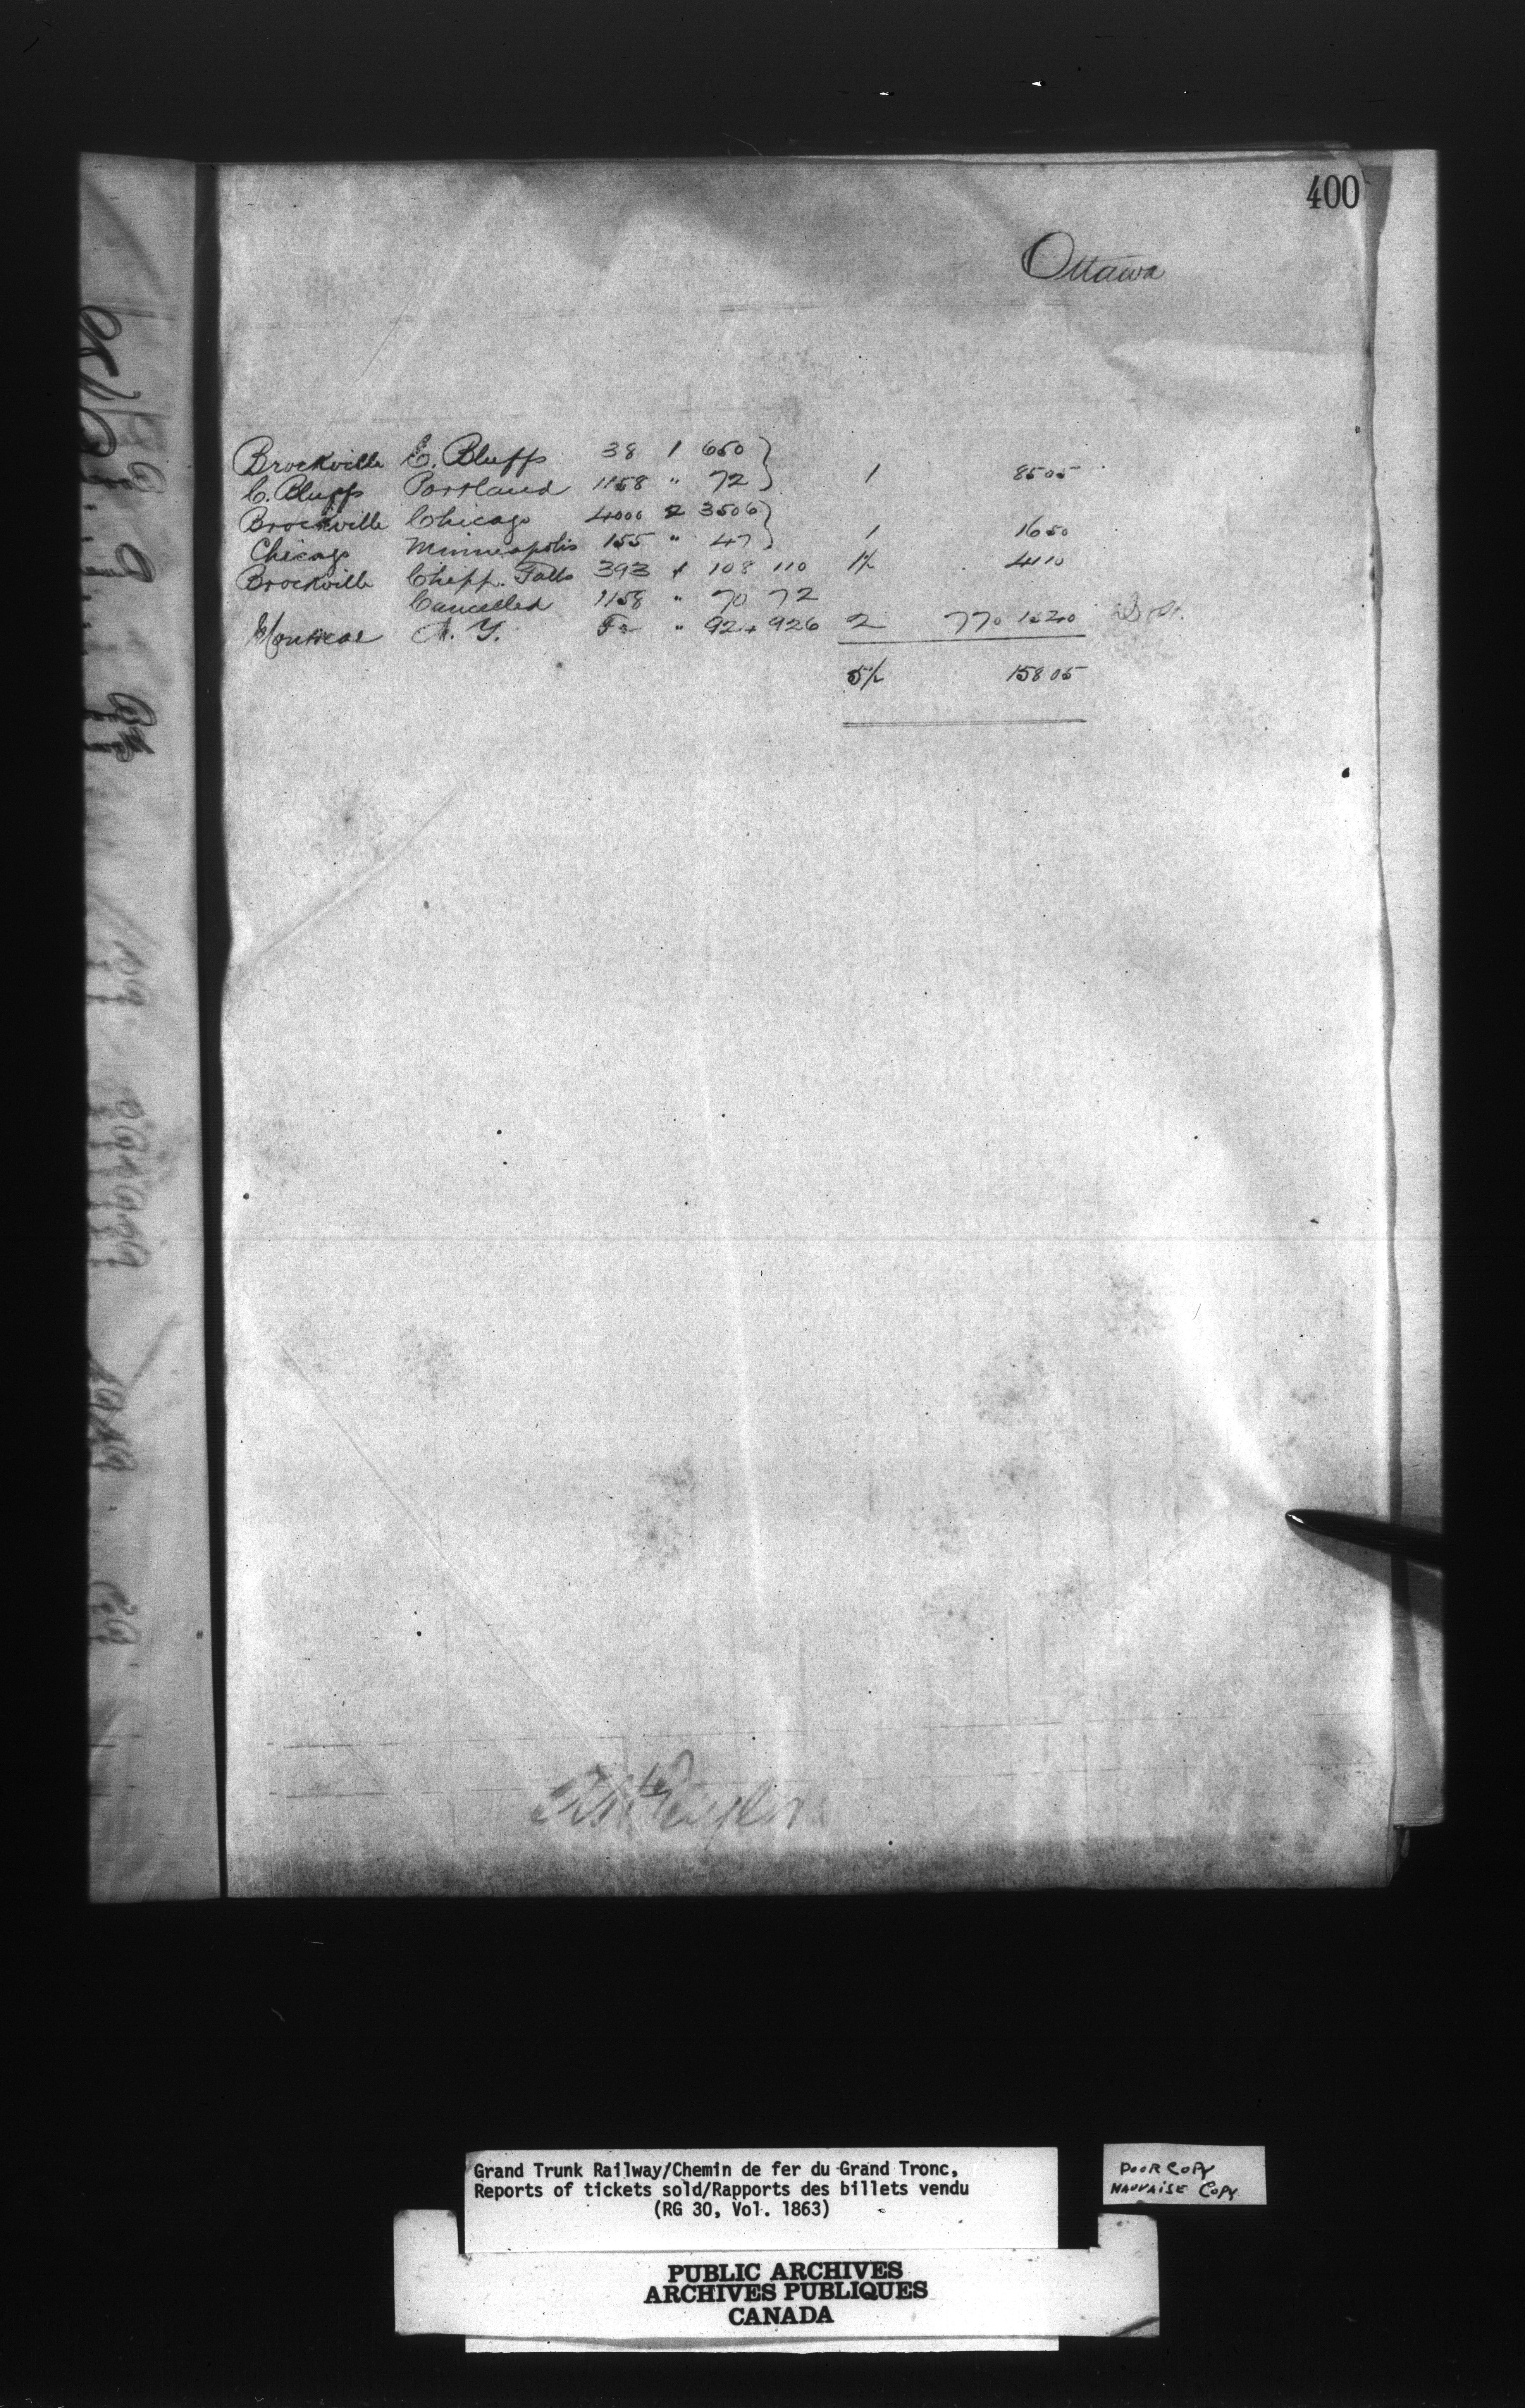 400
Ottawa
Brockville C. Bluffs 38 1 650 }
C. Bluffs Portland 1158 " 72 } 1 85 05
Brockville Chicago 4000 2 3506 }
Chicago Minneapolis 155 " 47 } 1 16 50
Brockville Chipp. Falls 393 1 108 110 1/2 41 10
Cancelled 1158 " 70 72
Montreal N. Y. " 924 926 2 770 15 40
5/2 158 05
Grand Trunk Railway/Chemin de fer du Grand Tronc,
Reports of tickets sold/Rapports des billets vendu
(RG 30, Vol. 1863)
POOR COPY
MAUVAISE COPY
PUBLIC ARCHIVES
ARCHIVES PUBLIQUES
CANADA